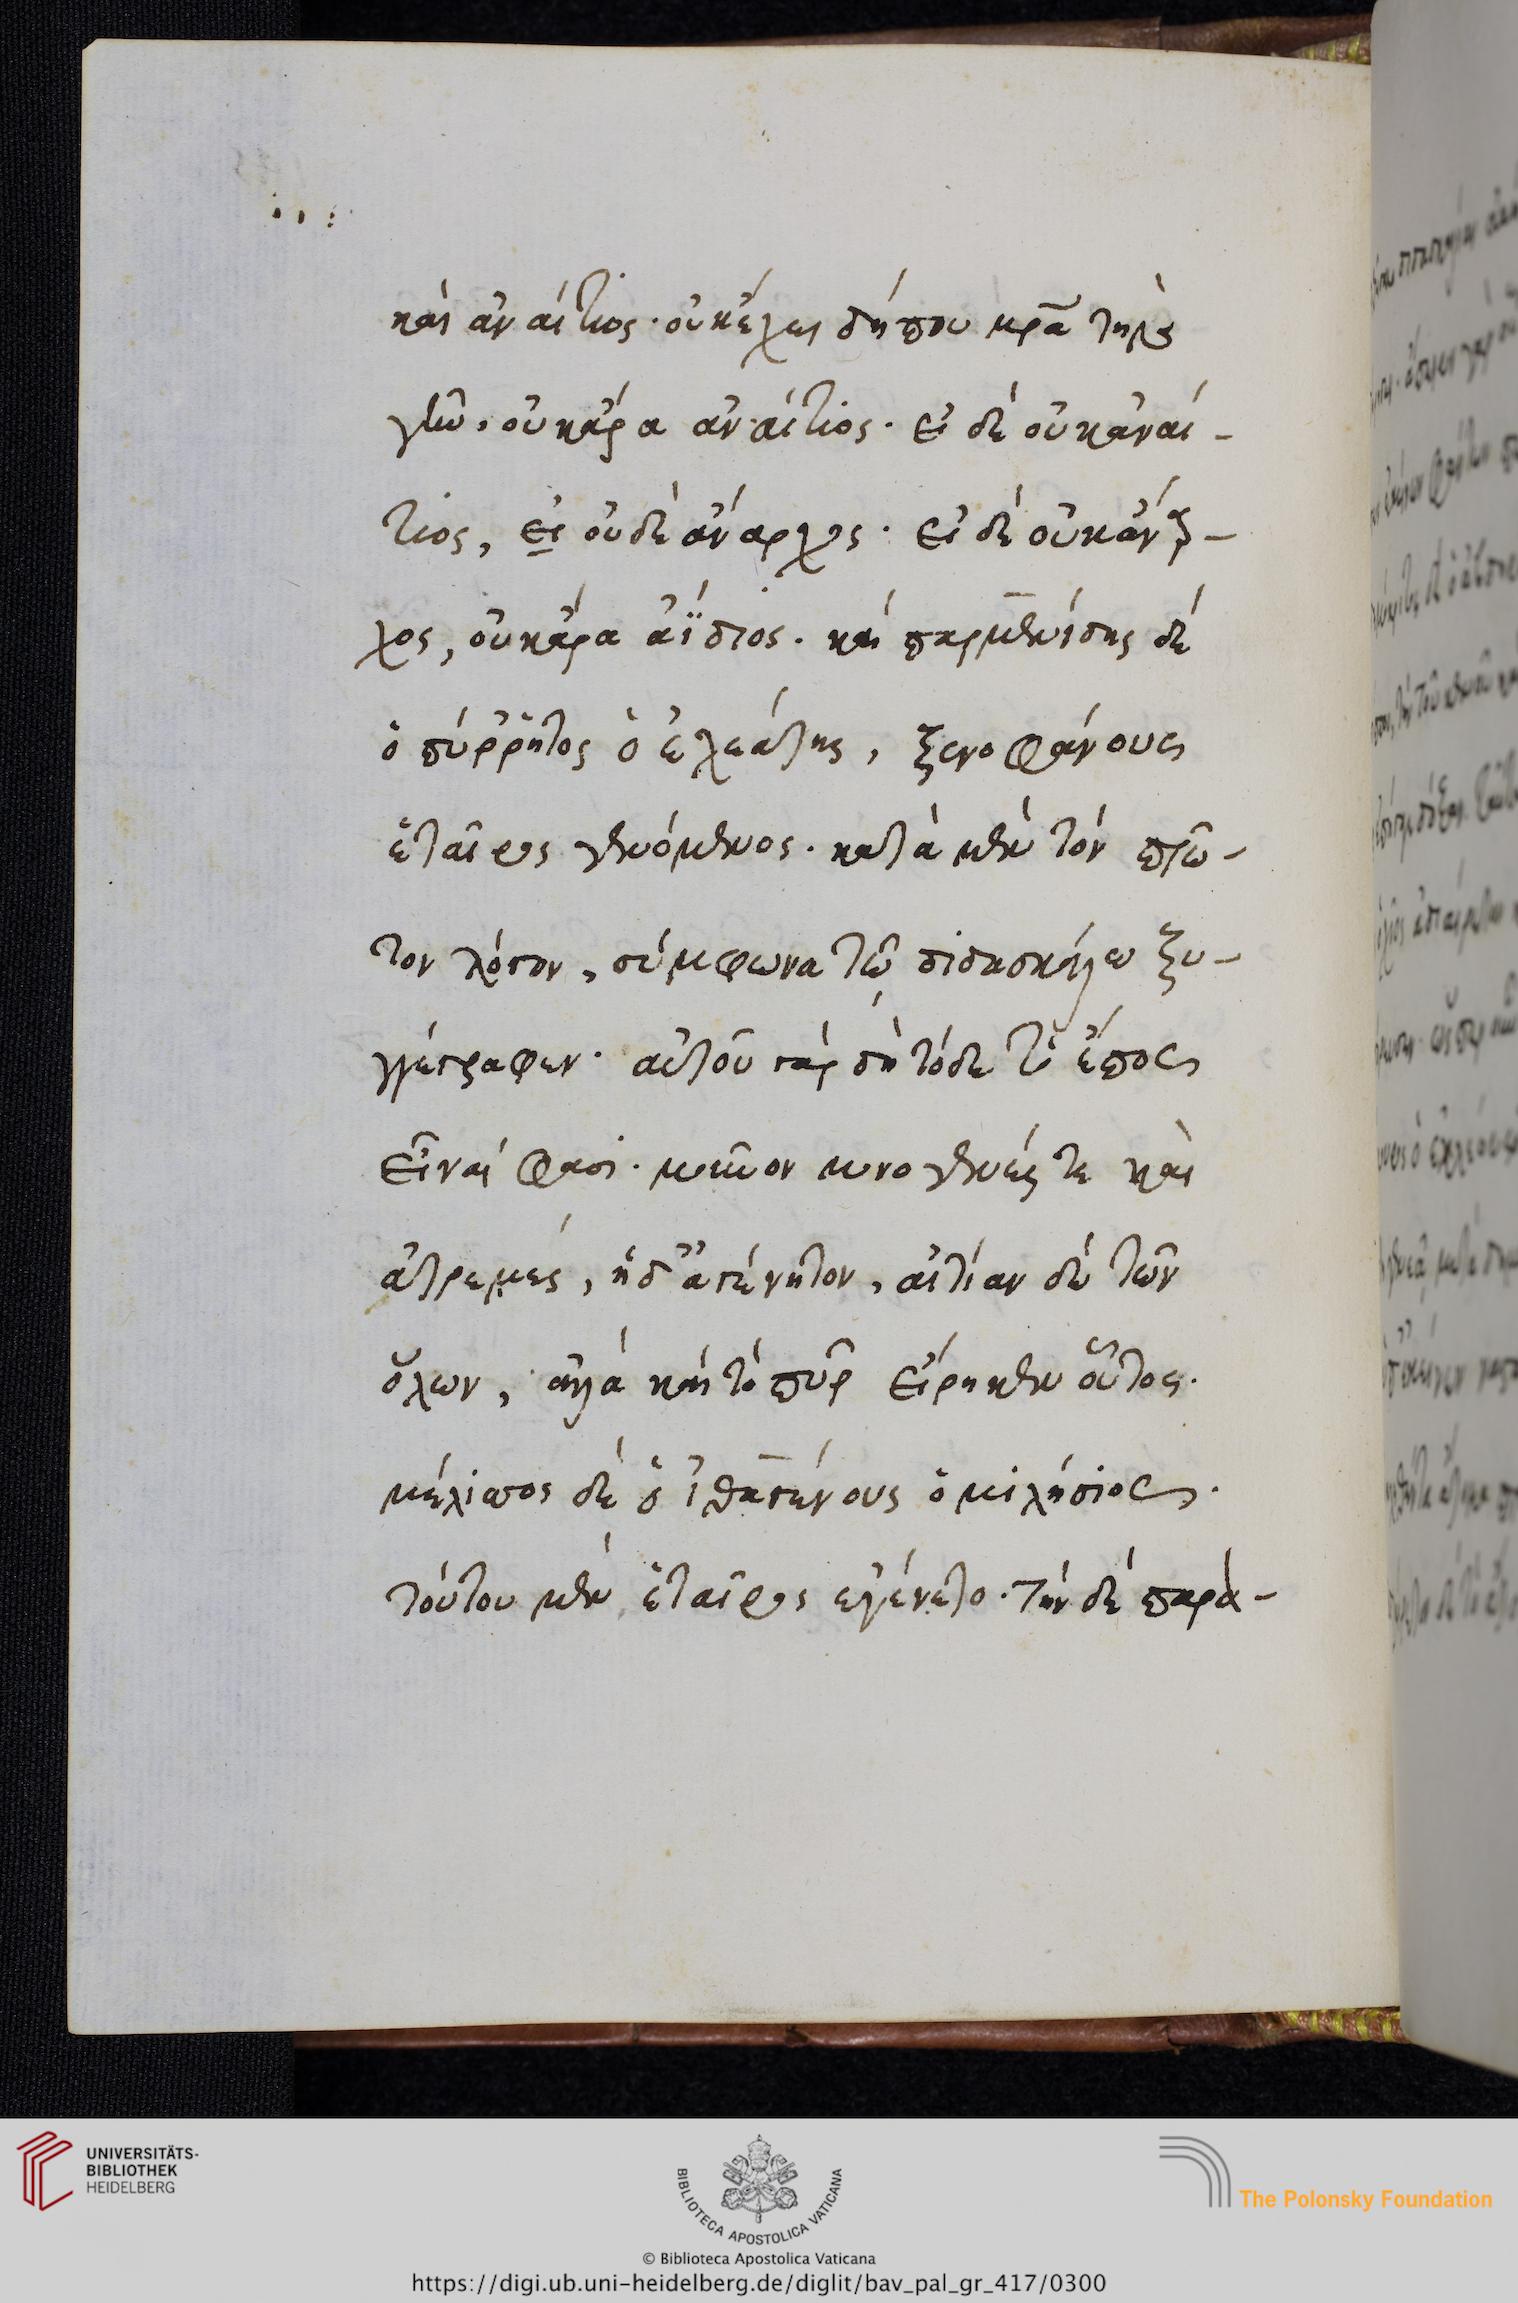 καὶ ἀναίτιος· οὐκ ἔχει δήπου κρατηρ
γῶ. οὐκ ἄρα ἀναίτιος· εἰ δὲ οὐκ ἀναί-
τιος, εἰ οὐδὲ ἄναρχος· εἰ δὲ οὐκ ἄναρ-
χος, οὐκ ἄρα ἀΐδιος. καὶ παρμενίδης δὲ
ὁ πύρρητος ὁ ἐλεάτης, ξενοφάνους
ἑταῖρος γενόμενος. κατὰ μὲν τὸν πρῶ-
τον λόγον, σύμφωνα τῶ διδασκάλω ξυ-
γγέγραφεν· αὐτοῦ γὰρ δὴ τόδε τὸ ἔπος
εἶναί φασι· μοῦνον μουνογενές τε καὶ
ἀτρεμές, ἠδ' ἀγένητον, αἰτίαν δὲ τῶν
ὅλων, ἀλλὰ καὶ τὸ πῦρ εἴρηκεν οὗτος.
μέλισσος δὲ ὁ ἰθαγένους ὁ μιλήσιος.
τούτου μὲν ἑταῖρος ἐγένετο. τὴν δὲ παρὰ-
UNIVERSITÄTS-
BIBLIOTHEK
HEIDELBERG
BIBLIOTECA APOSTOLICA VATICANA
The Polonsky Foundation
© Biblioteca Apostolica Vaticana
https://digi.ub.uni-heidelberg.de/diglit/bav_pal_gr_417/0300